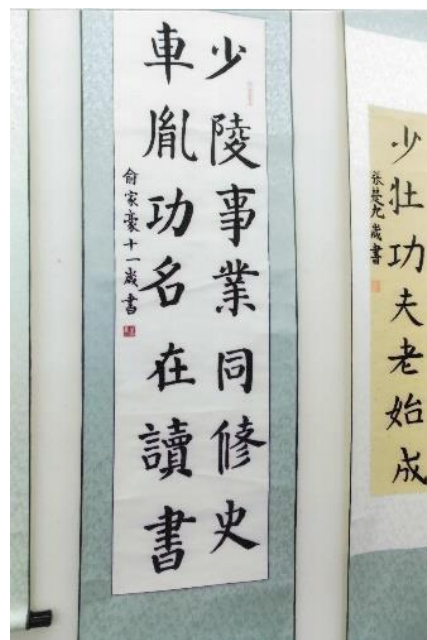 少陵事業同修史
車胤功名在讀書
俞家豪十一歲書
少壯功夫老始成
張楚九歲書